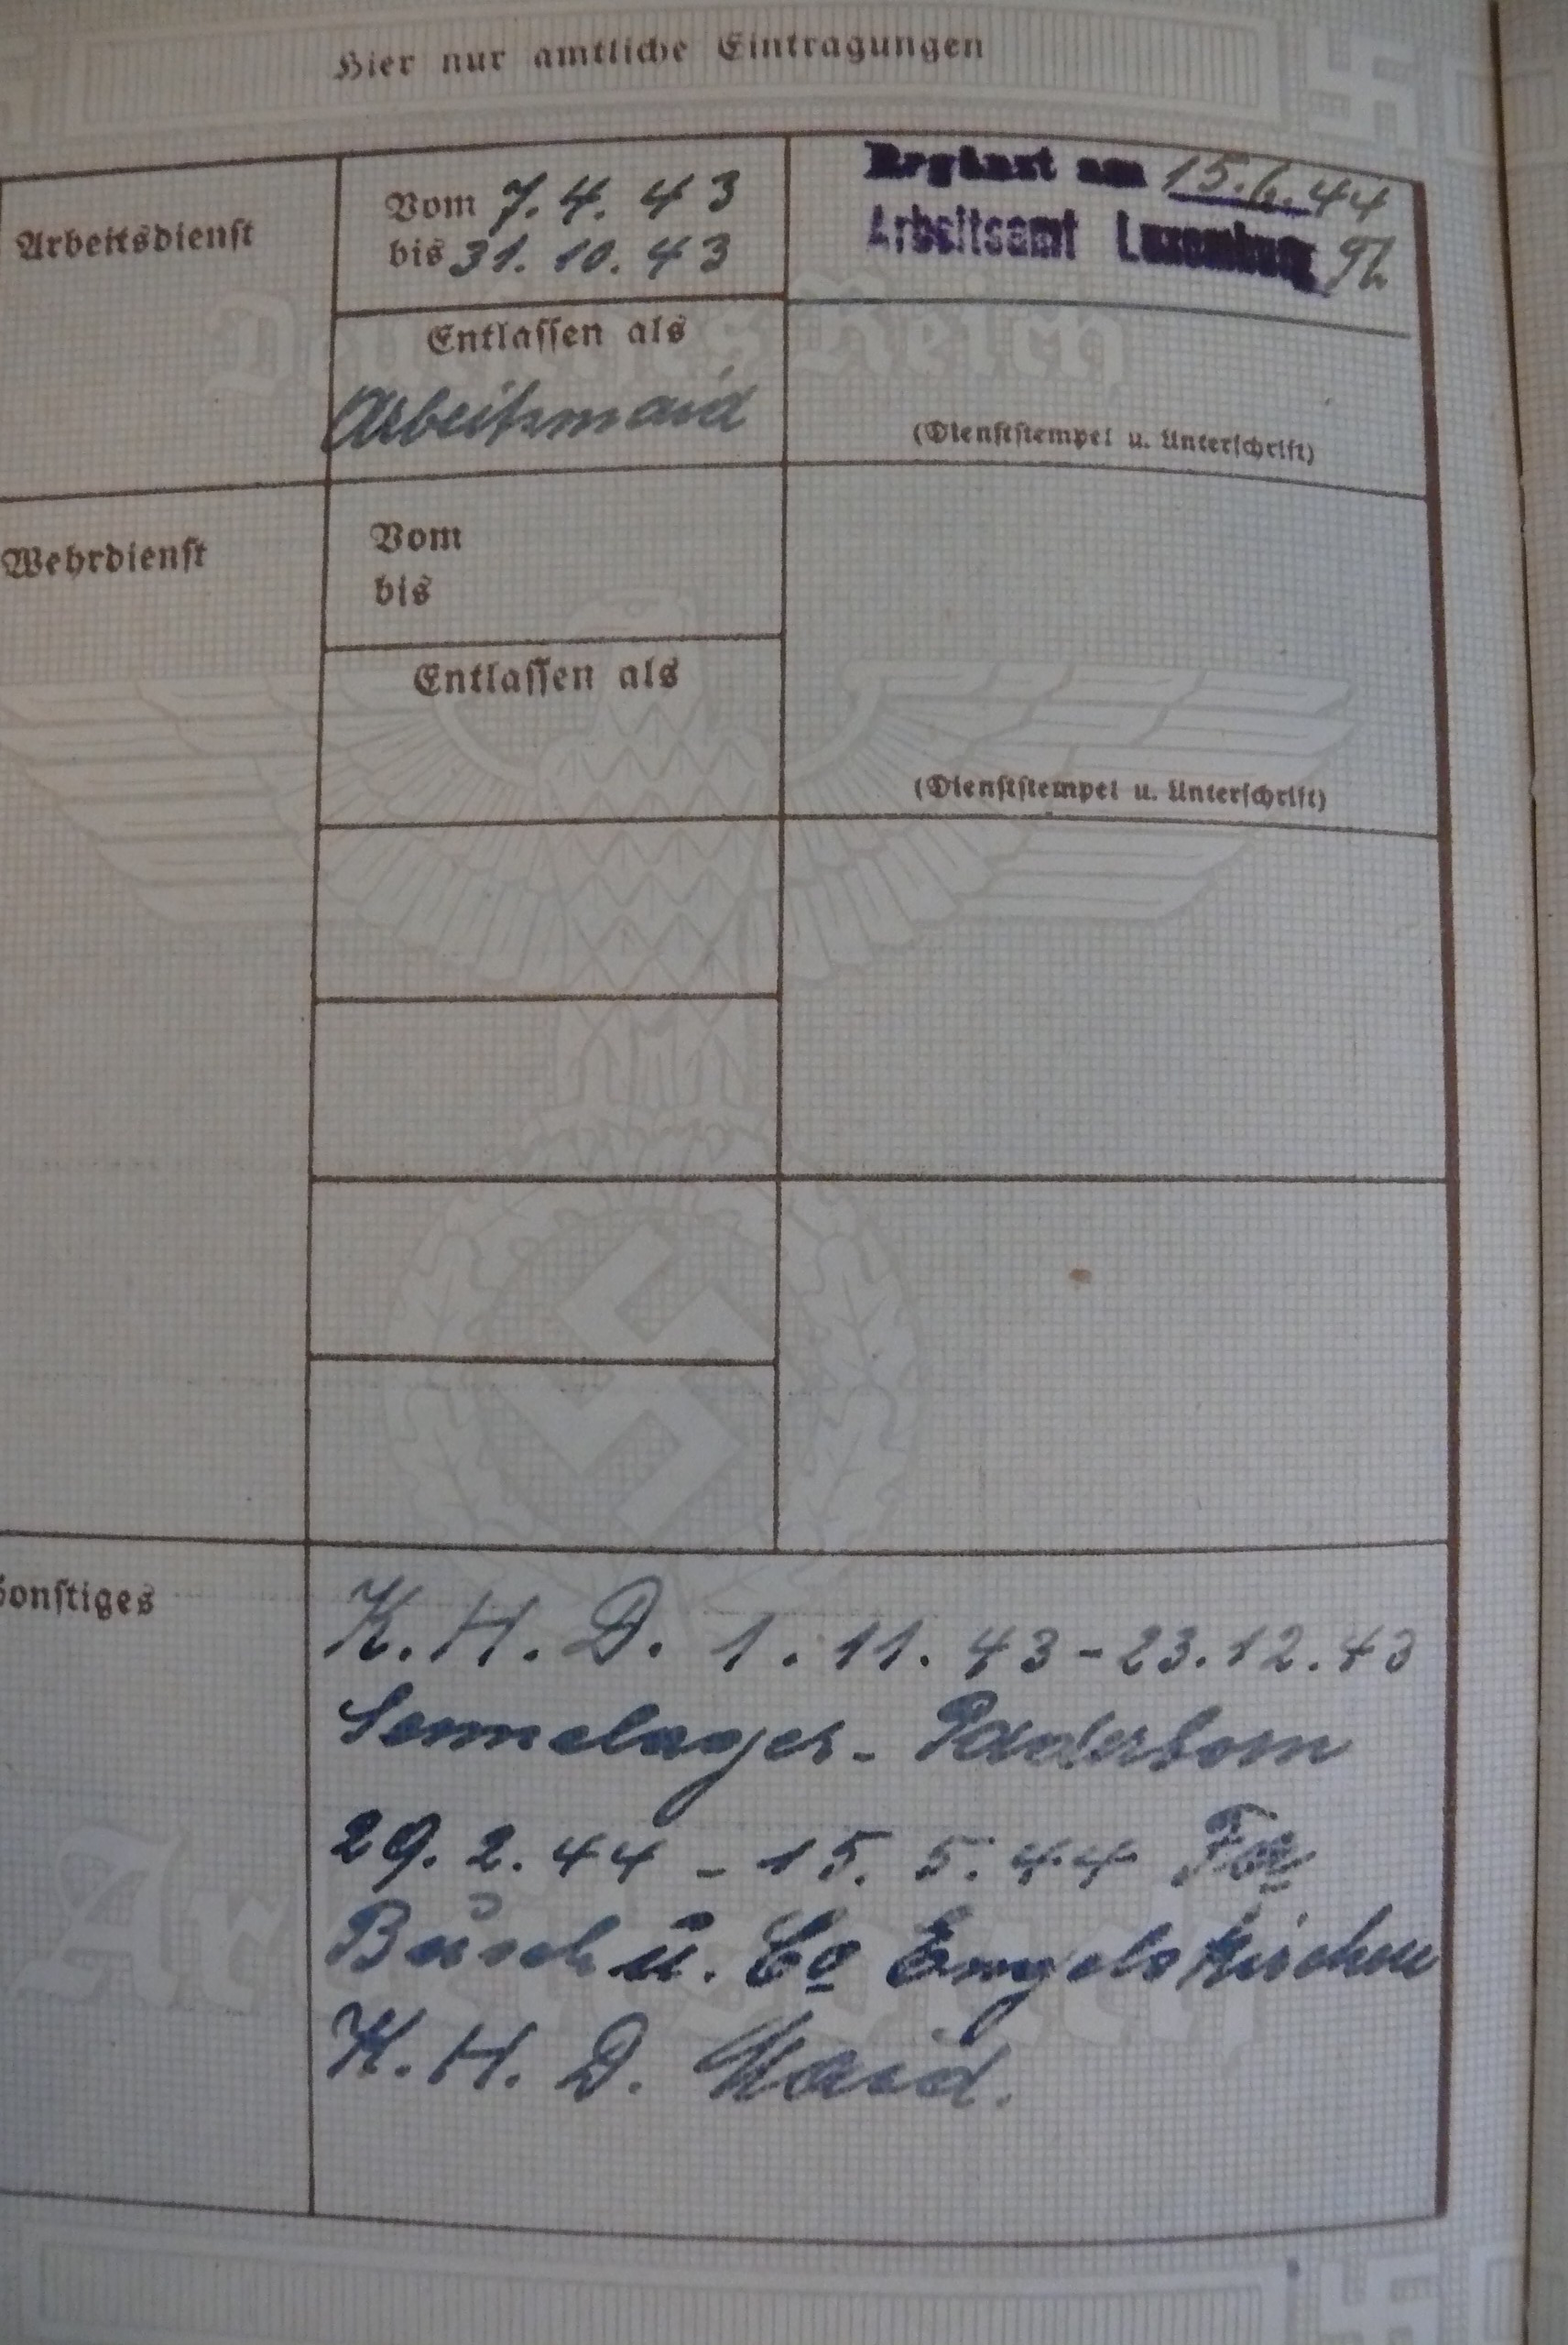 Hier nur amtliche Eintragungen
Arbeitsdienst
Vom 7. 4. 43
bis 31. 10. 43
Ergänzt am 15.6.44
Arbeitsamt Luxemburg
Entlassen als
Arbeitsmaid
(Dienststempel u. Unterschrift)
Wehrdienst
Vom
bis
Entlassen als
(Dienststempel u. Unterschrift)
Sonstiges
K. H. D. 1. 11. 43 - 23. 12. 43
Sennelager - Paderborn
29. 2. 44 - 15. 5. 44 Fa
Busch u. Co Engelskirchen
K. H. D. Maid.
Deutsches Reich
Arbeitsbuch